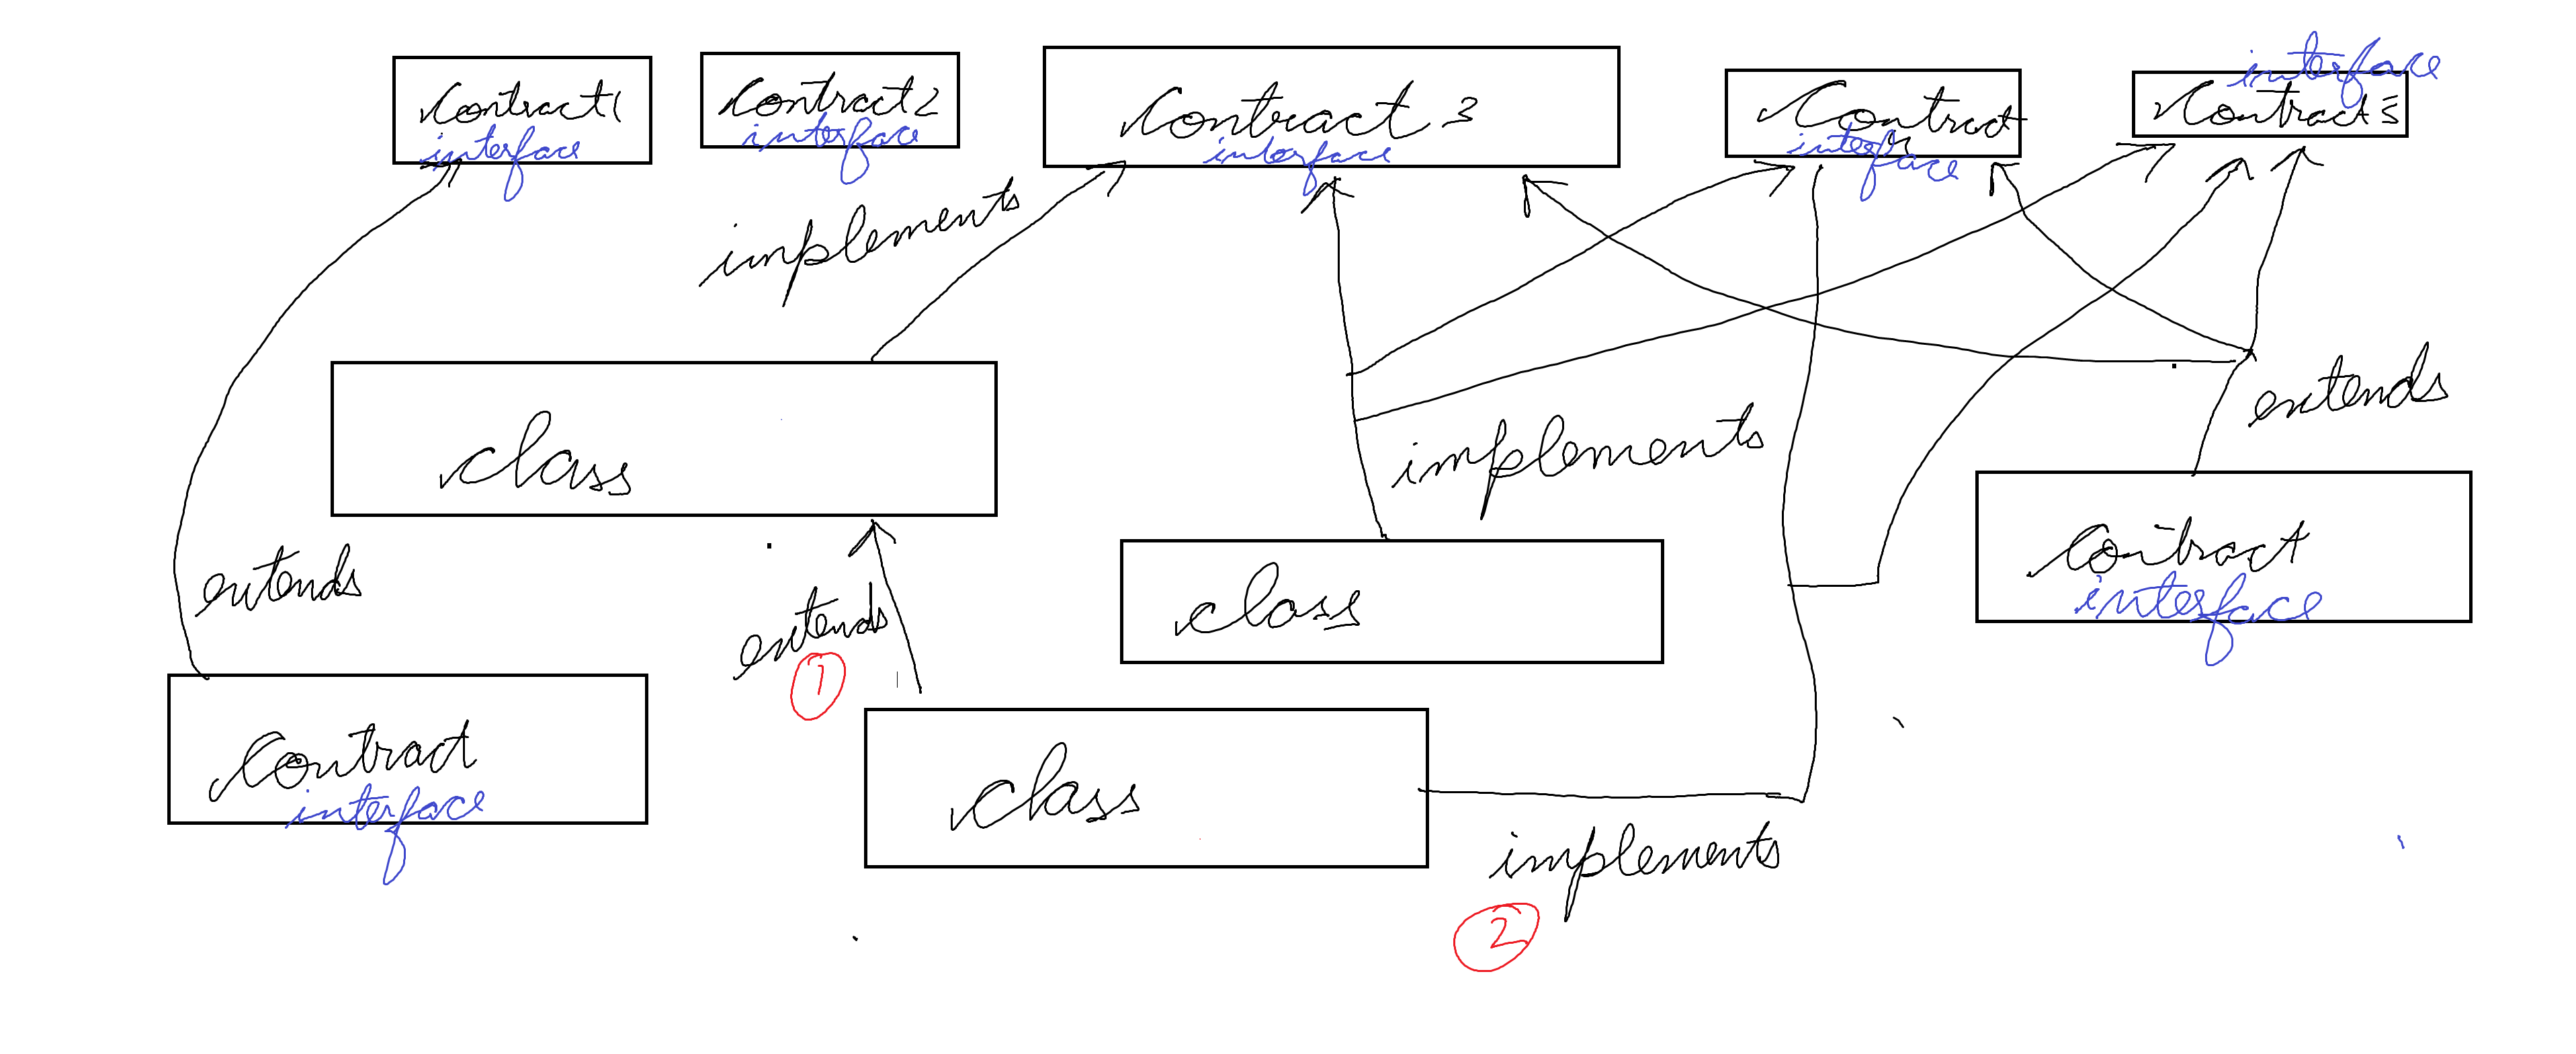 Contract 1
interface
Contract 2
interface
Contract 3
interface
Contract
interface
interface
Contract 5
implements
class
implements
extends
extends
extends
1
class
Contract
interface
Contract
interface
class
implements
2